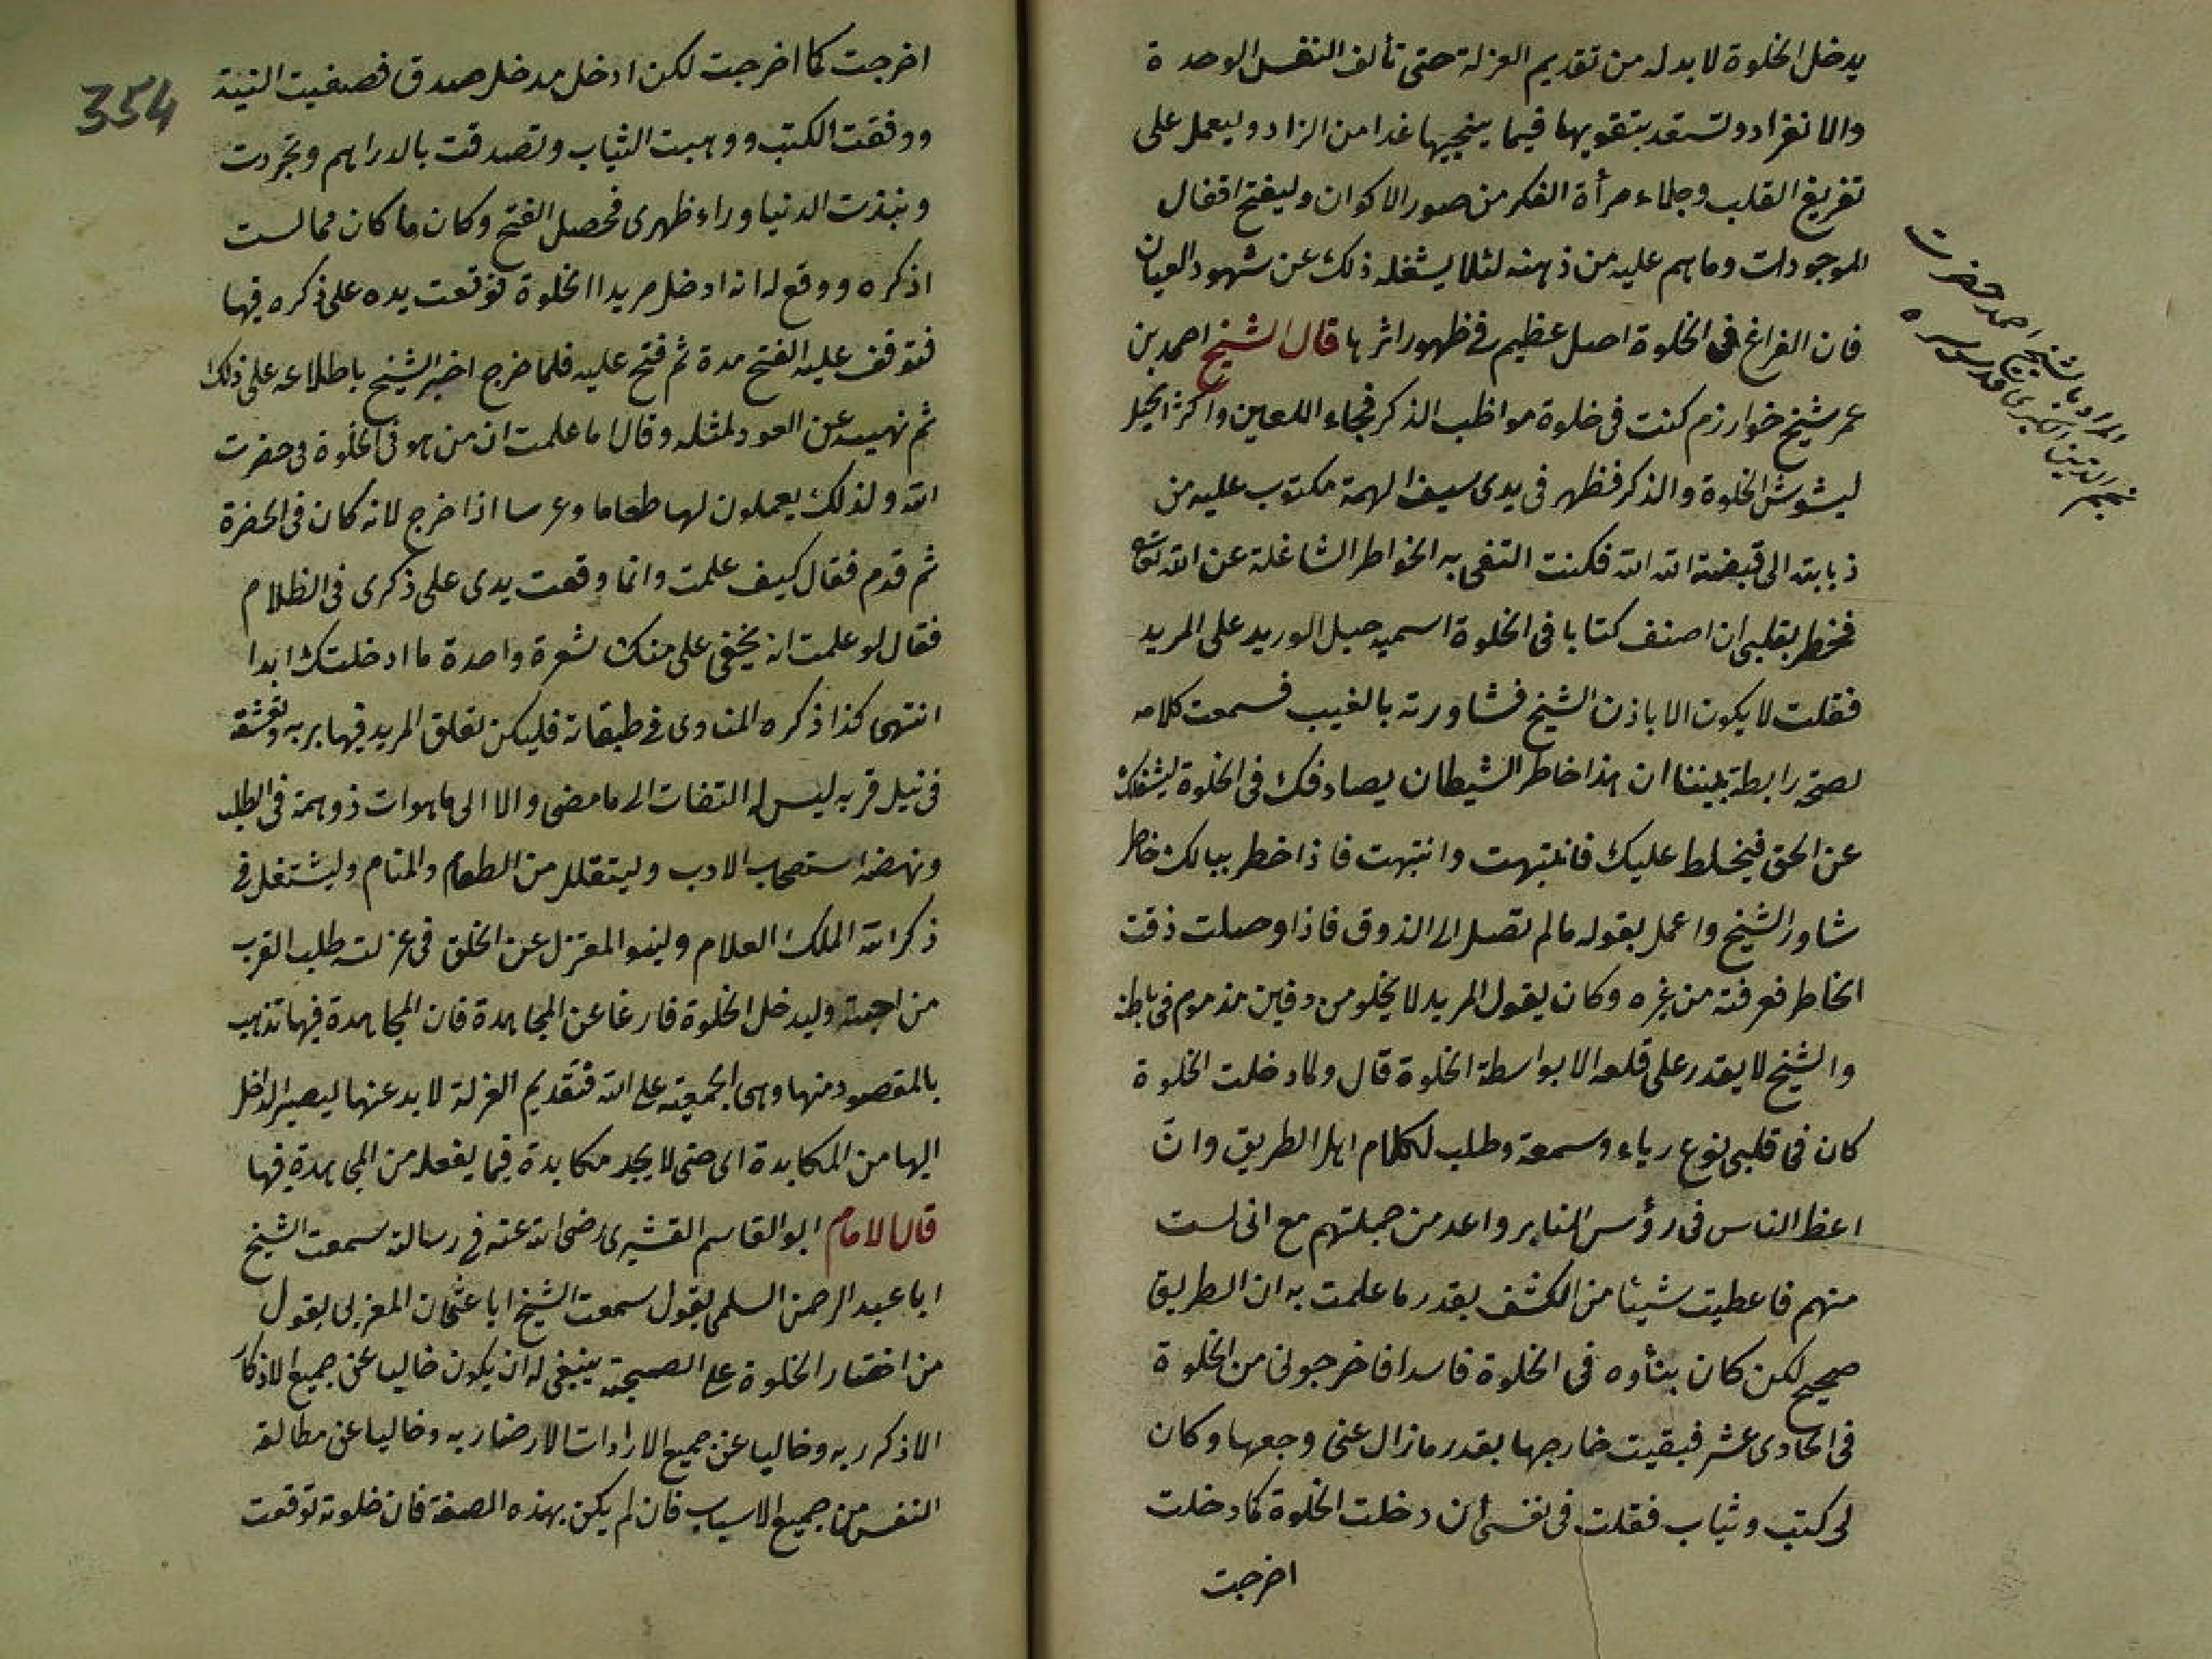 يدخل الخلوة لا بد له من تقديم العزلة حتى تألف النفس الوحدة
والانفراد ولتستعد بتقويها فيما ينجيها غدا من الزاد وليعمل على
تفريغ القلب وجلاء مرأة الفكر من صور الاكوان وليفتح اقفال
الموجودات وما هم عليه من ذهنه لئلا يشغله ذلك عن شهود العيان
فان الفراغ فى الخلوة اصل عظيم فى ظهور اثرها قال الشيخ احمد بن
عمر شيخ خوارزم كنت فى خلوة مواظب الذكر فجاء اللعين واكثر الحيل
ليشوش الخلوة والذكر فظهر فى يدى سيف الهمة مكتوب عليه من
ذبابته الى قبضته الله الله فكنت انفى به الخواطر الشاغلة عن الله تعالى
فخطر بقلبى ان اصنف كتابا فى الخلوة اسميه حبل الوريد على المريد
فقلت لا يكون الا باذن الشيخ فشاورته بالغيب فسمعت كلامه
لصحة رابطة بيننا ان هذا خاطر الشيطان يصادفك فى الخلوة ليشغلك
عن الحق فيخلط عليك فانتبهت وانتبهت فاذا خطر ببالك خاطر
شاور الشيخ واعمل بقوله مالم تصل الى الذوق فاذا وصلت ذقت
الخاطر فعرفته من غيره وكان يقول المريد لا يخلو من دفين مذموم فى باطنه
والشيخ لا يقدر على قلعه الا بواسطة الخلوة قال ولما دخلت الخلوة
كان فى قلبى نوع رياء وسمعة وطلب لكلام اهل الطريق وان
اعظ الناس فى رؤس المنابر واعد من جملتهم مع انى لست
منهم فاعطيت شيئا من الكشف بقدر ما علمت به ان الطريق
صحيح لكن كان بنأوه فى الخلوة فاسدا فاخرجونى من الخلوة
فى الحادى عشر فبقيت خارجها بقدر ما زال عنى وجعها وكان
لى كتب وثياب فقلت فى نفسى ان دخلت الخلوة كما دخلت
اخرجت
المراد بالشيخ احمد حضرت
نجم الدين الكبرى قدس سره
354
اخرجت كما اخرجت لكن ادخل مدخل صدق فصفيت النية
ووقفت الكتب ووهبت الثياب وتصدقت بالدراهم وتجردت
ونبذت الدنيا وراء ظهرى فحصل الفتح وكان ما كان مما لست
اذكره ووقع له انه ادخل مريدا الخلوة فوقعت يده على ذكره فيها
فتوقف عليه الفتح مدة ثم فتح عليه فلما خرج اخبر الشيخ باطلاعه على ذلك
ثم نهيه عن العود لمثله وقال اما علمت ان من هو فى الخلوة فى حضرت
الله ولذلك يعملون لها طعاما وعرسا اذا خرج لانه كان فى الحضرة
ثم قدم فقال كيف علمت وانما وقعت يدى على ذكرى فى الظلام
فقال لو علمت انه يخفى على منك شعرة واحدة ما ادخلتك ابدا
انتهى كذا ذكره المناوى فى طبقاته فليكن تعلق المريد فيها بربه وتعشقه
فى نيل قربه ليس له التفات الى ما مضى والا الى ما هو ات ذو همة فى الطلب
ونهضة استصحاب الادب وليتقلل من الطعام والمنام وليشتغل فى
ذكر الله الملك العلام ولينو المعتزل عن الخلق فى عزلته طلب القرب
من احبته وليدخل الخلوة فارغا عن المجاهدة فان المجاهدة فيها تذهب
بالمقصود منها وهى الجمعية على الله فتقديم العزلة لا بد عنها ليصير الداخل
اليها من المكابدة اى حتى لا يجد مكابدة فيما يفعله من المجاهدة فيها
قال الامام ابو القاسم القشيرى رضى الله عنه فى رسالته سمعت الشيخ
ابا عبد الرحمن السلمى يقول سمعت الشيخ ابا عثمان المغربى يقول
من اختار الخلوة على الصحبة ينبغى له ان يكون خاليا عن جميع الاذكار
الا ذكر ربه وخاليا عن جميع الارادات الا رضا ربه وخاليا عن مطالبة
النفس من جميع الاسباب فان لم يكن بهذه الصفة فان خلوته توقعت